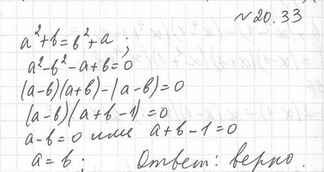 №20.33
a²+b=b²+a;
a²-b²-a+b=0
(a-b)(a+b)-(a-b)=0
(a-b)(a+b-1)=0
a-b=0 или a+b-1=0
a=b; Ответ: верно.